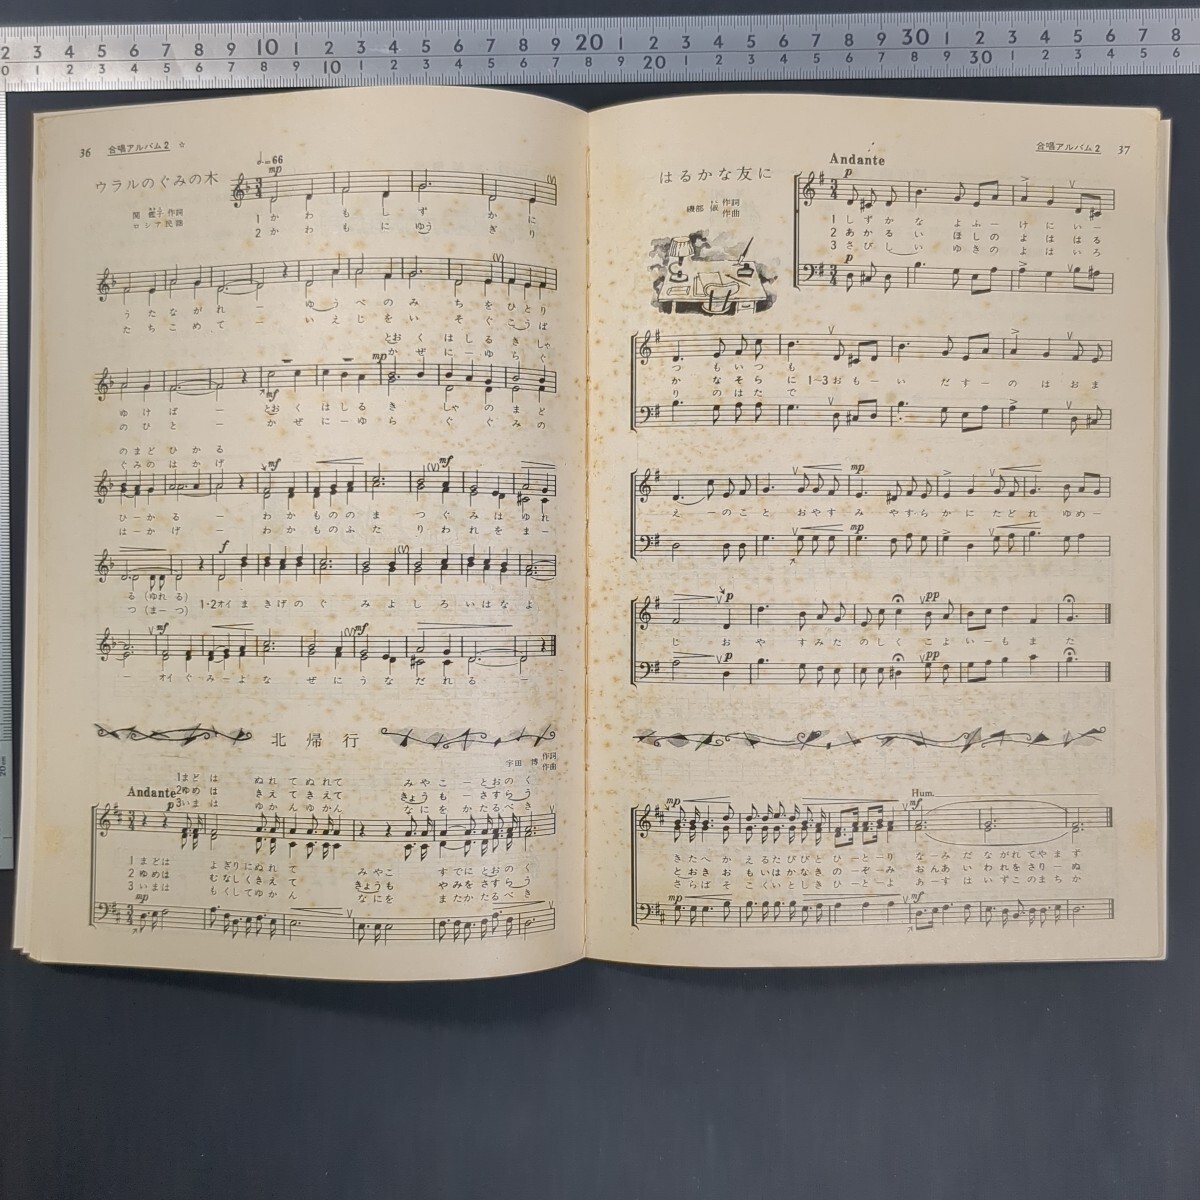 36 合唱アルバム2 ☆
ウラルのぐみの木
関 鑑子 作詞
ロシア民謡
♩=66
mp
1 かわもしずかに
2 かわもにゆうぎり
うたながれー ゆうべのみちをひとり
たちこめてー
とおくはしるきしゃ
かぜにーゆらぐ
mp
mf
ゆけばー とおくはしるきしゃのまど
のひとー かぜにーゆらぐぐみの
のまどひかる
ぐみのはかげ
mf
mf
ひーかるー わかもののまつぐみはゆれ
はーかげー わかものふたりわれをまー
f
る(ゆれる) 1・2オイまきげのぐみよしろいはなよ
つ(まーつ)
mf
mf
ー オイぐみーよなぜにうなだれるー
北帰行
宇田 博 作詞
作曲
Andante
1まどは ぬれてぬれて みやこーとおのく
2ゆめは きえてきえて きょうもーさすらう
3いまは ゆかんゆかん なにをかたるべき
p
1 まどは よぎりにぬれて みやこすでにとおのく
2 ゆめは むなしくきえて きょうもやみをさすらう
3 いまは もくしてゆかん なにをまたかたるべき
mp
合唱アルバム2 37
はるかな友に
磯部 俶 作詞
作曲
Andante
p
1 しずかなよふーけにいー
2 あかるいほしのよははる
3 さびしいゆきのよはいろ
p
つもいつも
かなそらに 1-3おもーいだすーのはおま
りのはたで
mp
えーのことおやすみやすらかにたどれゆめー
mp
p
pp
じおやすみたのしくこよいーもまた
p
pp
mp
Hum.
mf
きたへかえるたびびとひーとーり なーみだながれてやまず
とおきおもいはかなきのーぞーみ おんあいわれをさりーぬ
さらばそこくいとしきひーとーよ あーすはいずこのまちか
mp
mf